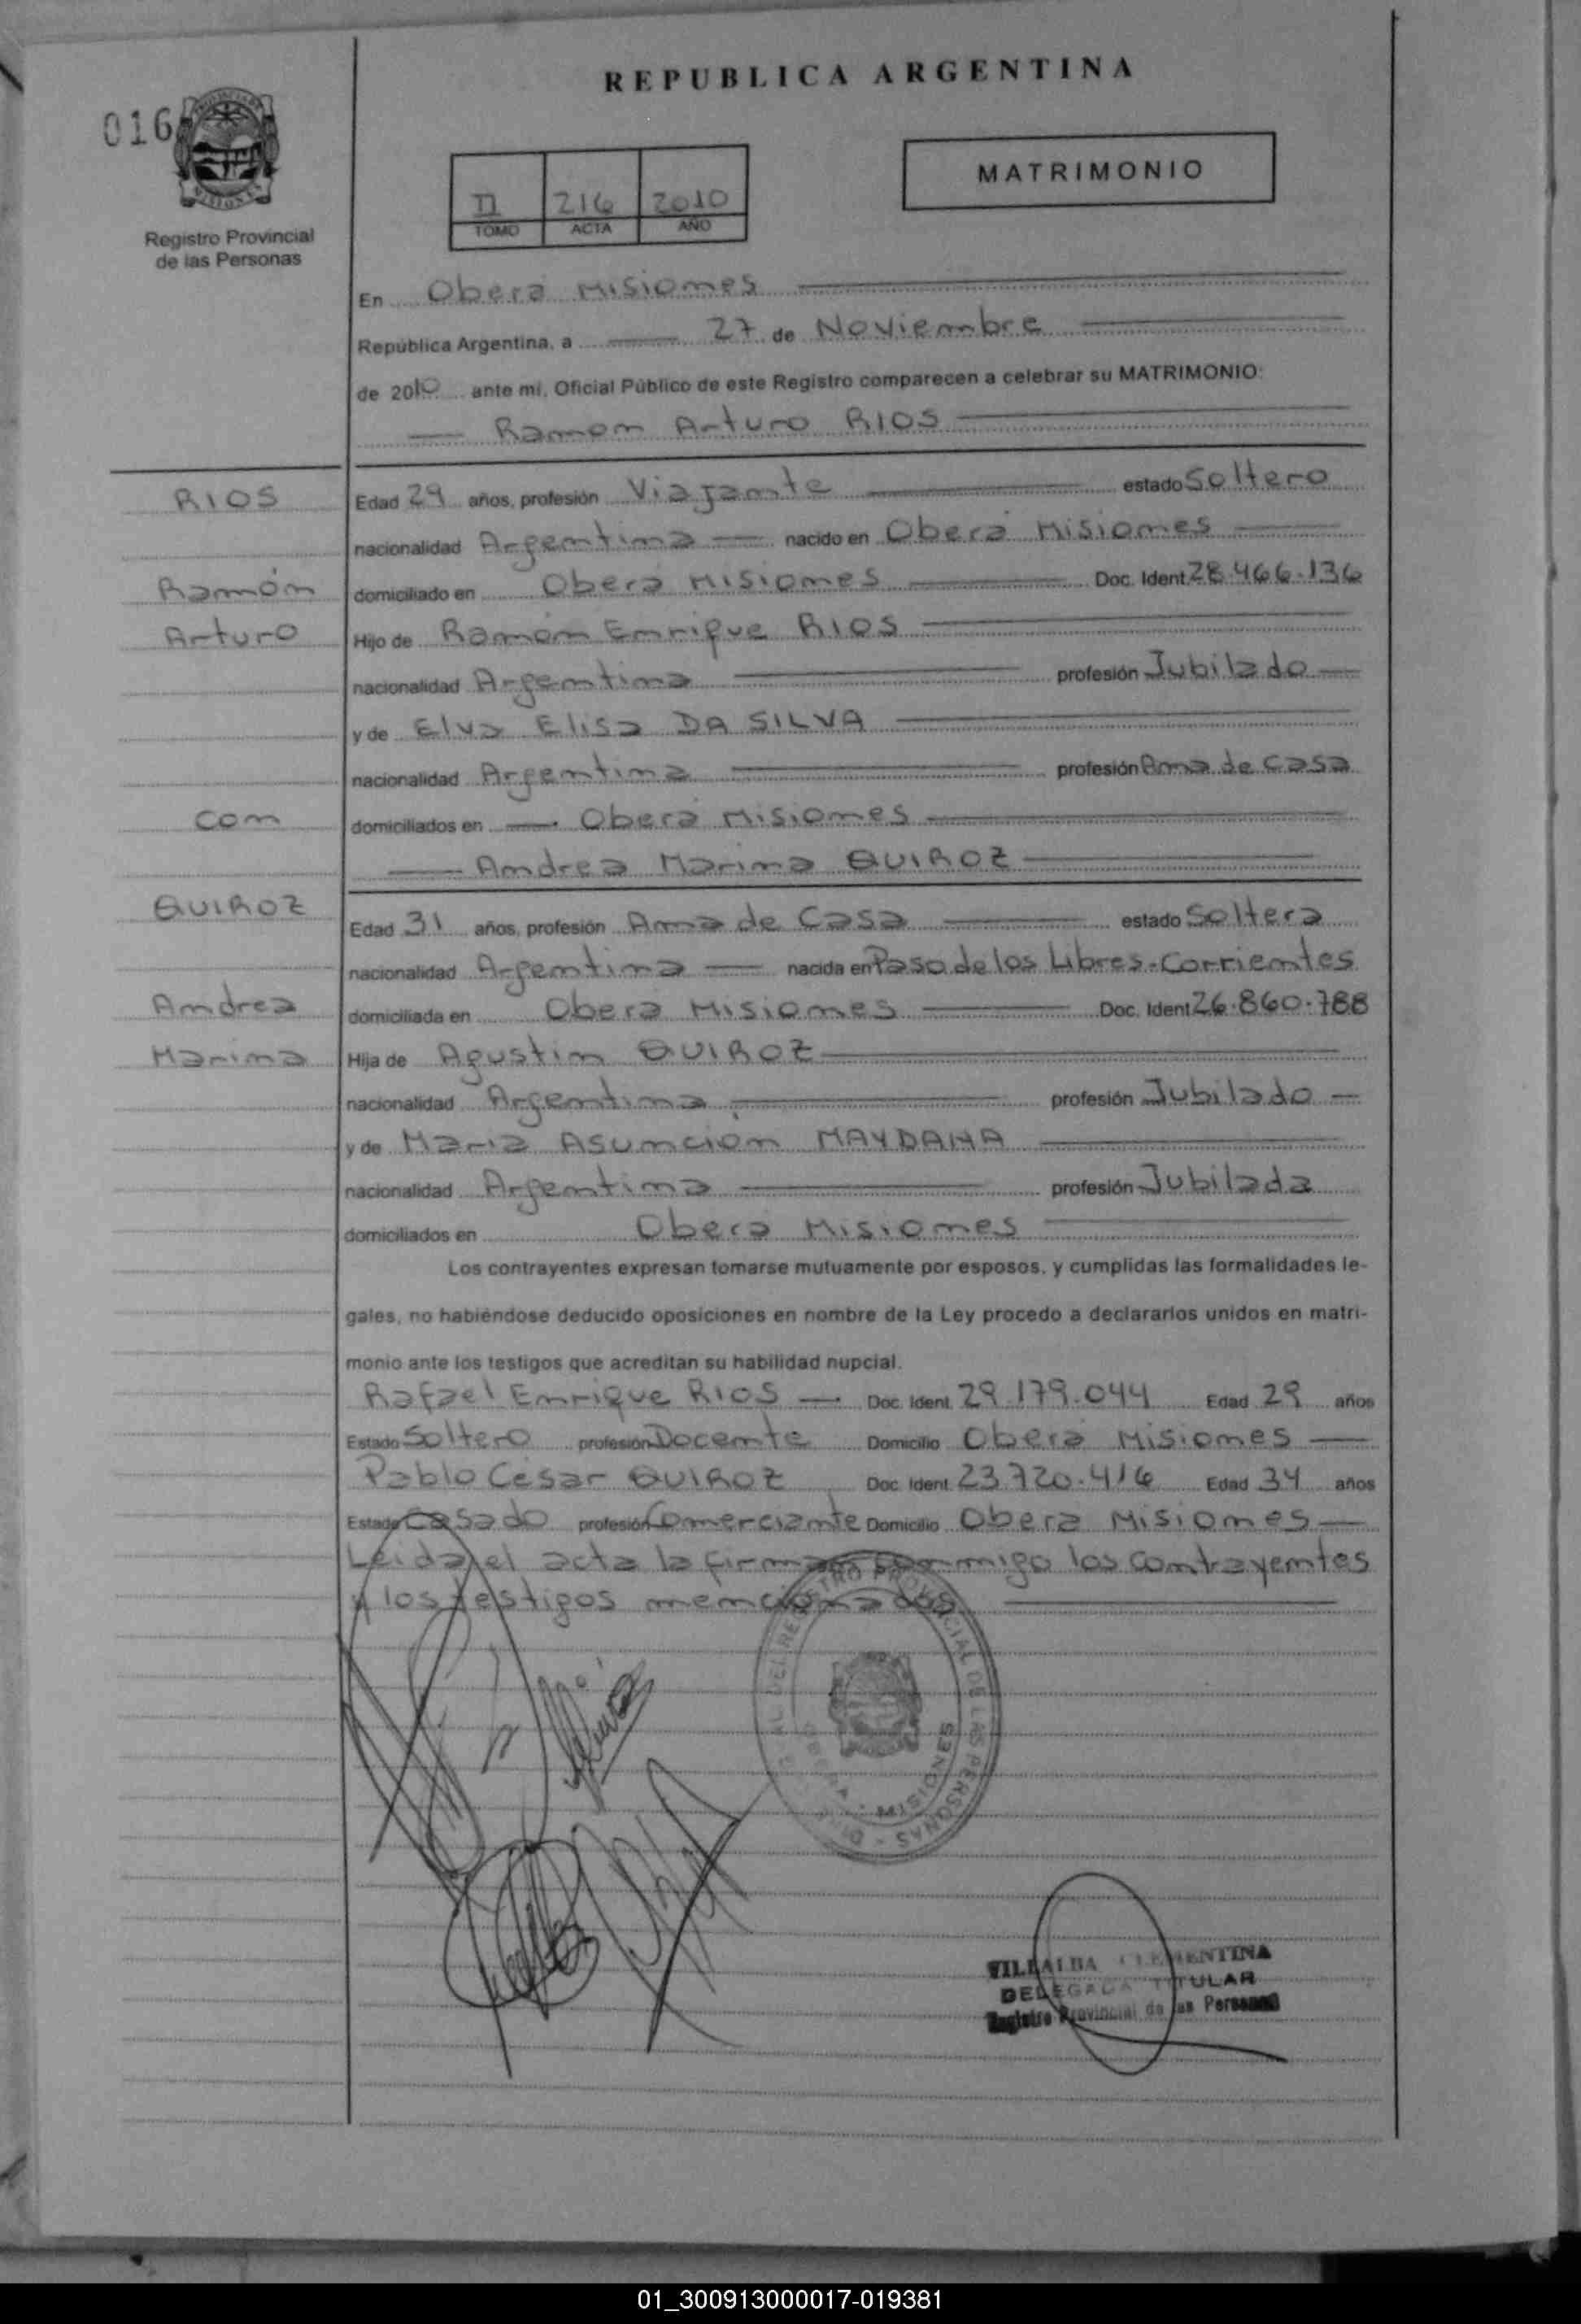 REPUBLICA ARGENTINA
016
MATRIMONIO
II 216 2010
TOMO ACTA AÑO
Registro Provincial
de las Personas
En Oberá Misiones
República Argentina, a 27 de Noviembre
de 2010 ante mí, Oficial Público de este Registro comparecen a celebrar su MATRIMONIO:
Ramon Arturo RIOS
RIOS
Edad 29 años, profesión Viajante estado Soltero
nacionalidad Argentina nacido en Oberá Misiones
Ramón
domiciliado en Oberá Misiones Doc. Ident 28.466.136
Arturo
Hijo de Ramón Enrique RIOS
nacionalidad Argentina profesión Jubilado
y de Elva Elisa DA SILVA
nacionalidad Argentina profesión Ama de Casa
con
domiciliados en Oberá Misiones
Andrea Marina QUIROZ
QUIROZ
Edad 31 años, profesión Ama de Casa estado Soltera
nacionalidad Argentina nacida en Paso de los Libres-Corrientes
Andrea
domiciliada en Oberá Misiones Doc. Ident 26.860.788
Marina
Hija de Agustin QUIROZ
nacionalidad Argentina profesión Jubilado
y de Maria Asunción MAYDANA
nacionalidad Argentina profesión Jubilada
domiciliados en Oberá Misiones
Los contrayentes expresan tomarse mutuamente por esposos, y cumplidas las formalidades le-
gales, no habiéndose deducido oposiciones en nombre de la Ley procedo a declararlos unidos en matri-
monio ante los testigos que acreditan su habilidad nupcial.
Rafael Enrique RIOS Doc. Ident. 29.179.044 Edad 29 años
Estado Soltero profesión Docente Domicilio Oberá Misiones
Pablo César QUIROZ Doc. Ident. 23.720.416 Edad 34 años
Estado Casado profesión Comerciante Domicilio Oberá Misiones
Leida el acta la firman conmigo los contrayentes
y los testigos mencionados
DEL REGISTRO PROVINCIAL DE LAS PERSONAS
OBERA - MISIONES
VILLALBA CLEMENTINA
DELEGADA TITULAR
Registro Provincial de las Personas
01_300913000017-019381